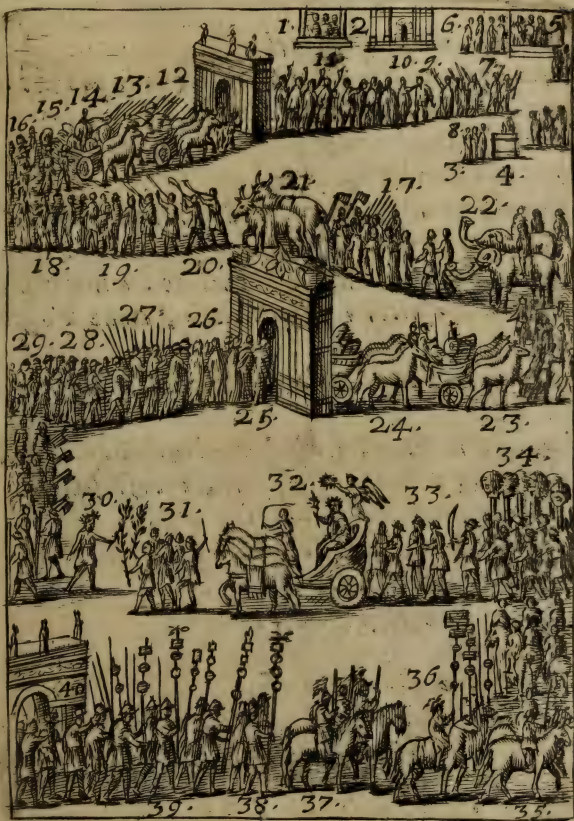 1. 2 6. 5
11 10. 9. 7.
16. 15. 14. 13. 12
8.
3. 4.
21. 17. 22.
18. 19. 20.
29. 28. 27. 26.
25. 24. 23.
30. 31. 32. 33. 34.
40
36.
39. 38. 37. 35.